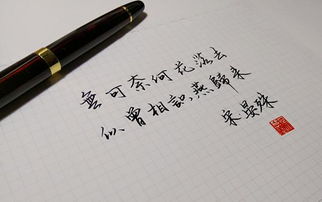 無可奈何花落去
似曾相識燕歸来
宋晏殊